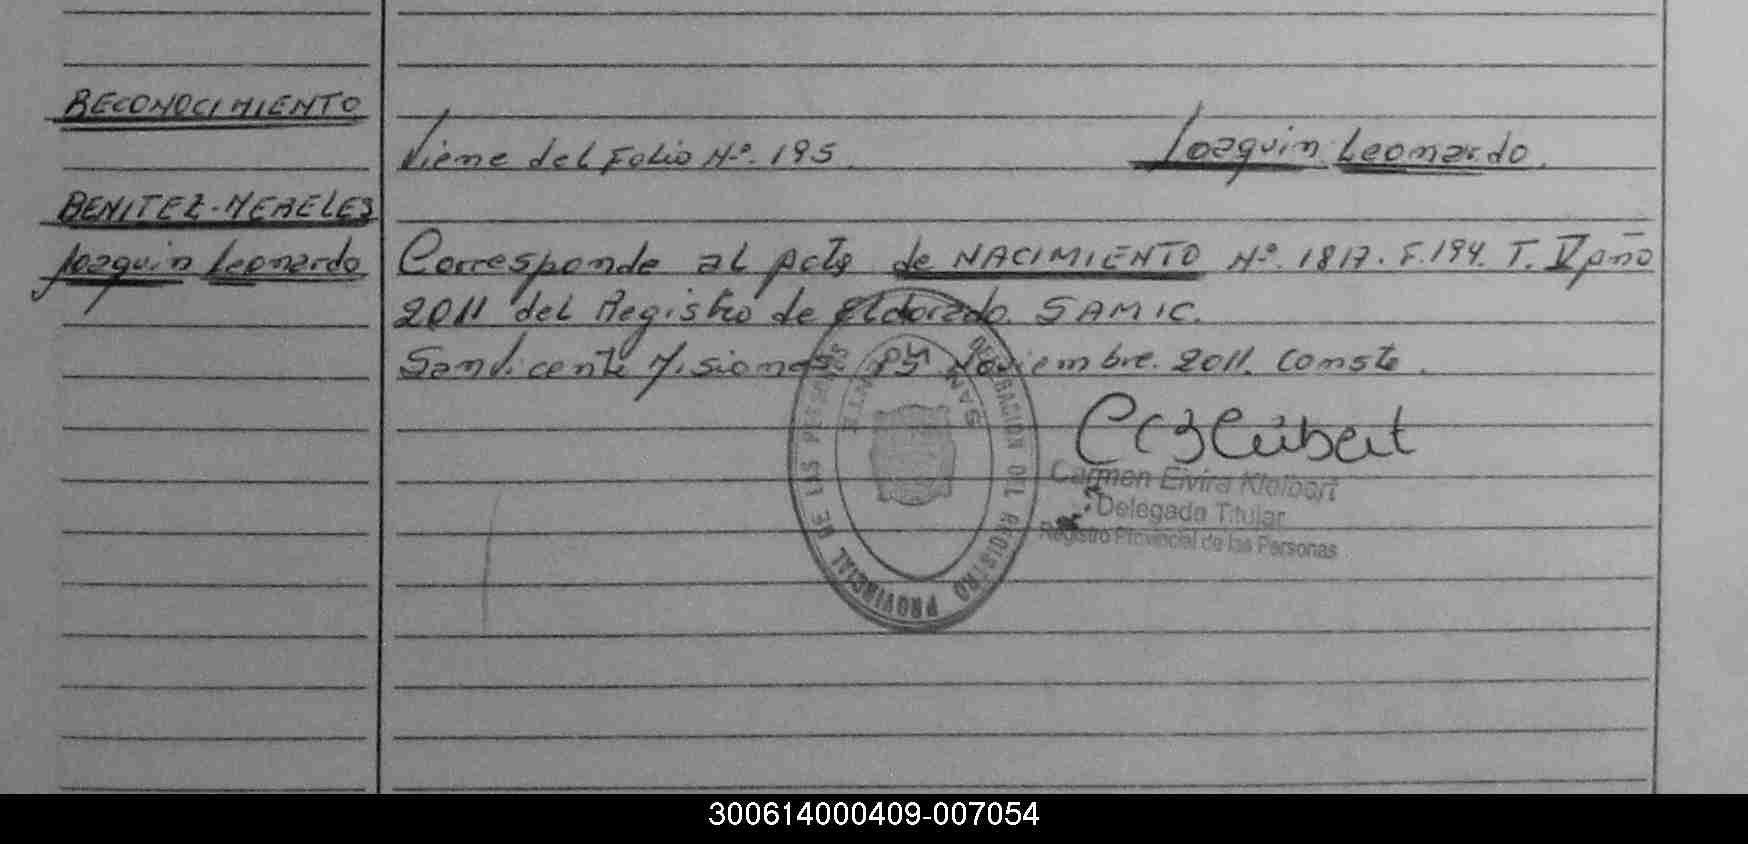 RECONOCIMIENTO
Viene del Folio Nº. 195.
Joaquin Leonardo.
BENITEZ-MERELES
Joaquin Leonardo
Corresponde al Acta de NACIMIENTO Nº. 1817. F. 194. T. V Año
2011 del Registro de Eldorado. SAMIC.
San Vicente Misiones Noviembre. 2011. Conste.
DELEGACION DEL REGISTRO PROVINCIAL DE LAS PERSONAS
SAN
Carmen Elvira Kleibert
Delegada Titular
Registro Provincial de las Personas
300614000409-007054